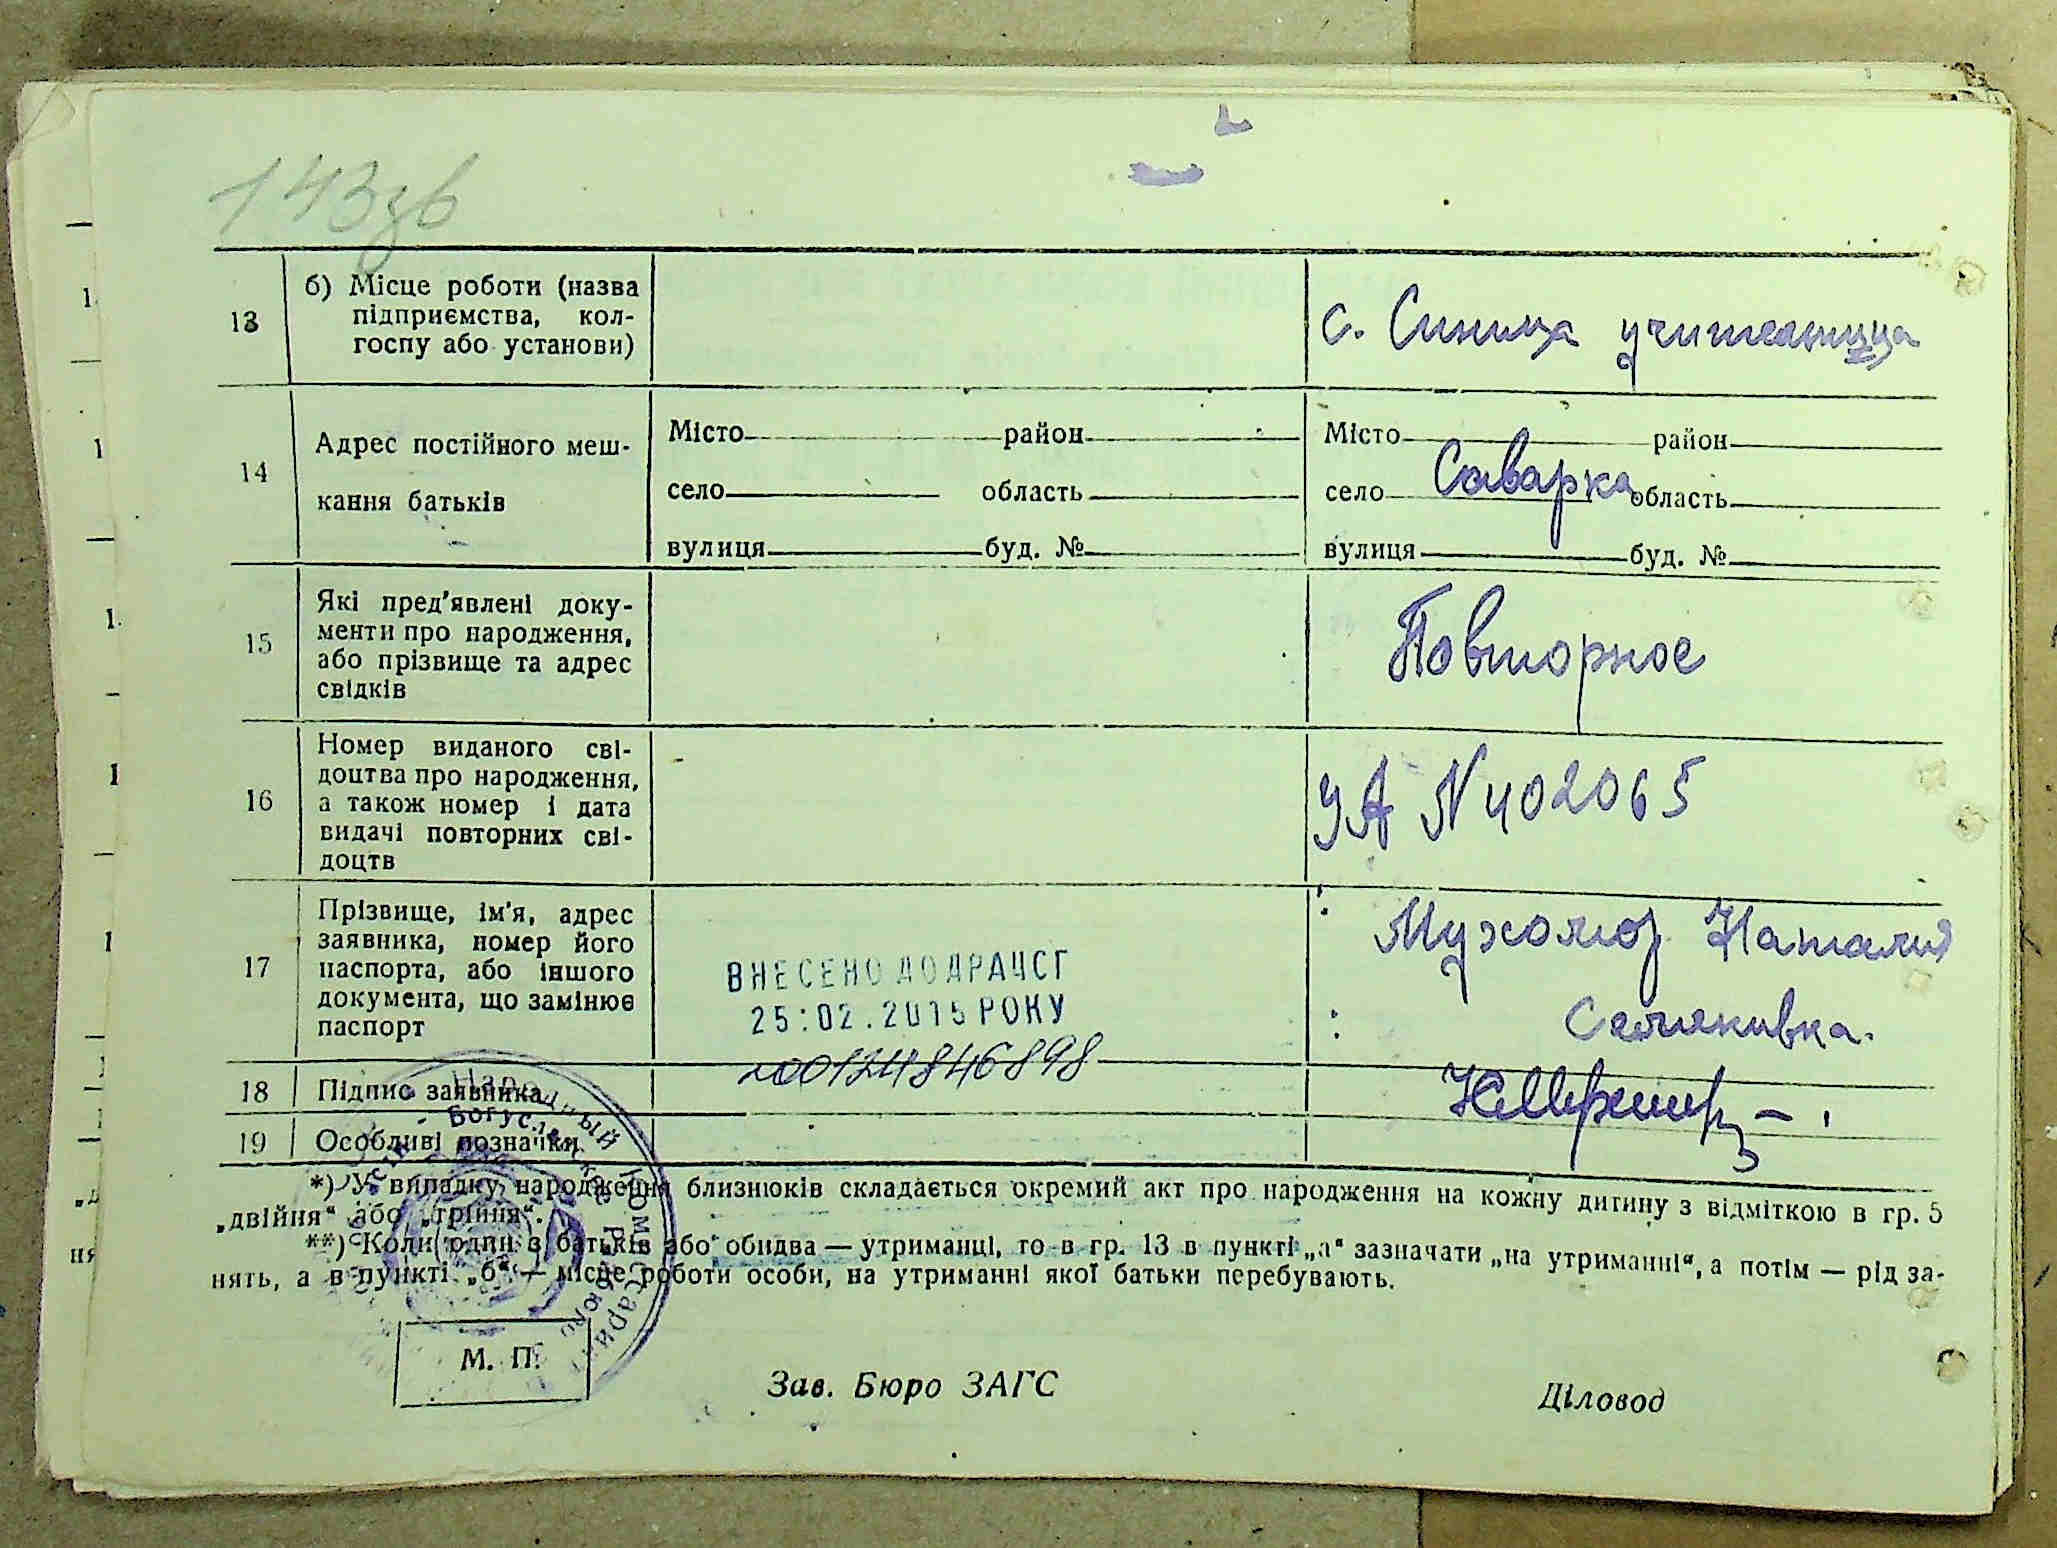 143зв
13
б) Місце роботи (назва
підприємства, кол-
госпу або установи)
с. Синиця учителница
14
Адрес постійного меш-
кання батьків
Місто район
село область
вулиця буд. №
Місто район
село Саварка область
вулиця буд. №
15
Які пред'явлені доку-
менти про народження,
або прізвище та адрес
свідків
Повторное
16
Номер виданого сві-
доцтва про народження,
а також номер і дата
видачі повторних сві-
доцтв
УА N 402065
17
Прізвище, ім'я, адрес
заявника, номер його
паспорта, або іншого
документа, що замінює
паспорт
ВНЕСЕНО ДО ДРАЦСГ
25.02.2015 РОКУ
Мухомор Наталия
18
Підпис заявника
00124846898
19
Особливі позначки
*) У випадку народження близнюків складається окремий акт про народження на кожну дитину з відміткою в гр. 5
„двійня“ або „трійня“.
**) Коли один з батьків або обидва — утриманці, то в гр. 13 в пункті „а“ зазначати „на утриманні“, а потім — рід за-
нять, а в пункті „б“ — місце роботи особи, на утриманні якої батьки перебувають.
Народный Комиссариат
Богуславское бюро
М. П.
Зав. Бюро ЗАГС
Діловод